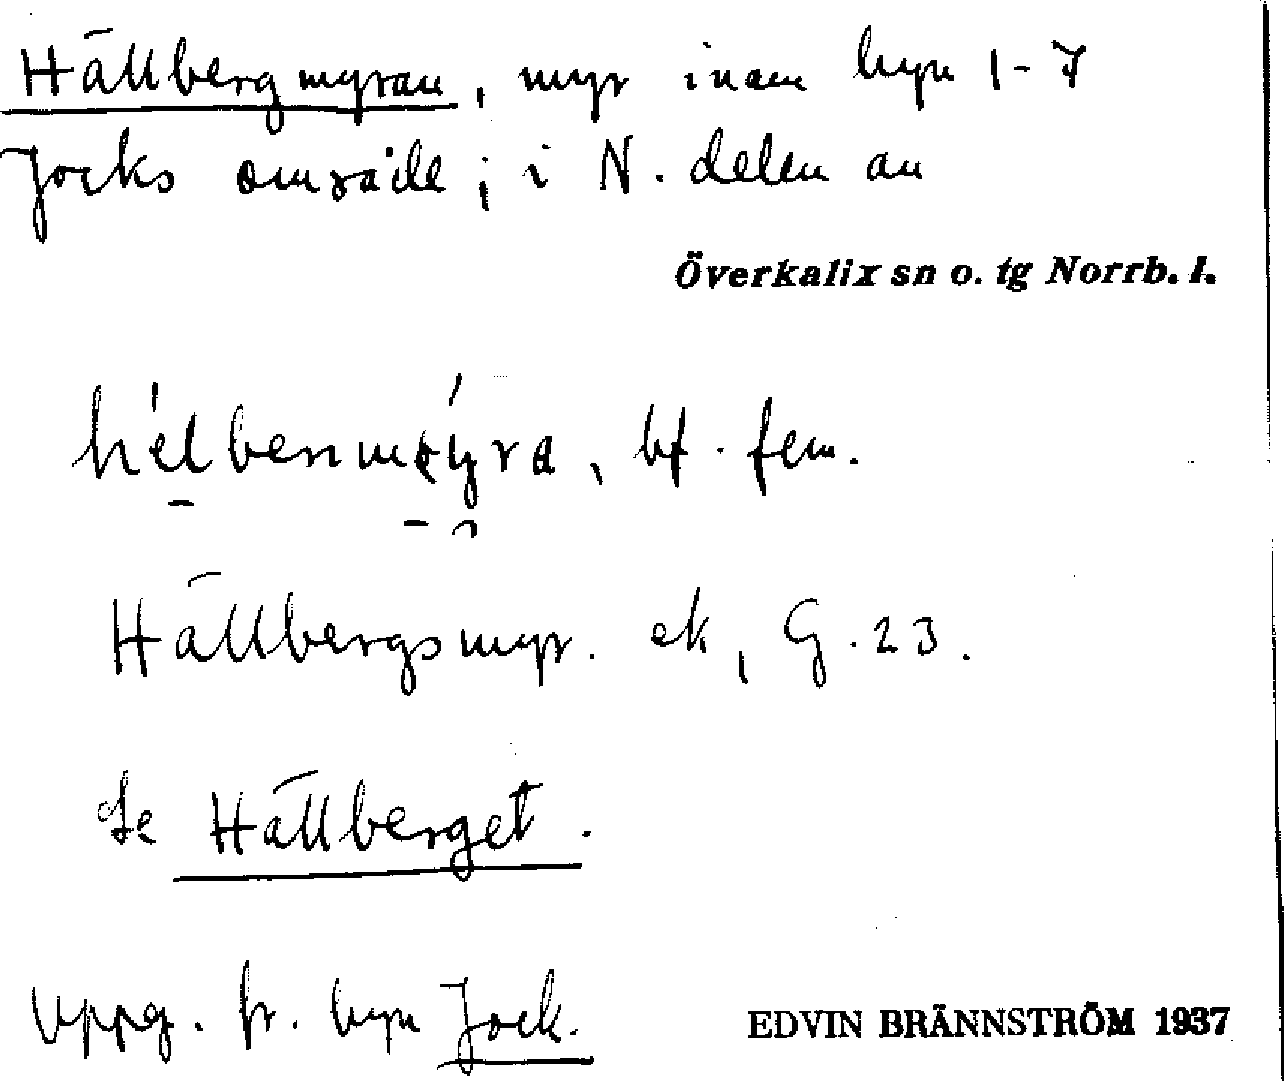 Hällbergmyran, myr inom byn 1-7
Jocks område; i N. delen av
Överkalix sn o. tg Norrb. l.
bf. fem.
Hällbergsmyr. ek, G. 23.
Se Hällberget.
Uppg. fr. byn Jock.
EDVIN BRÄNNSTRÖM 1937